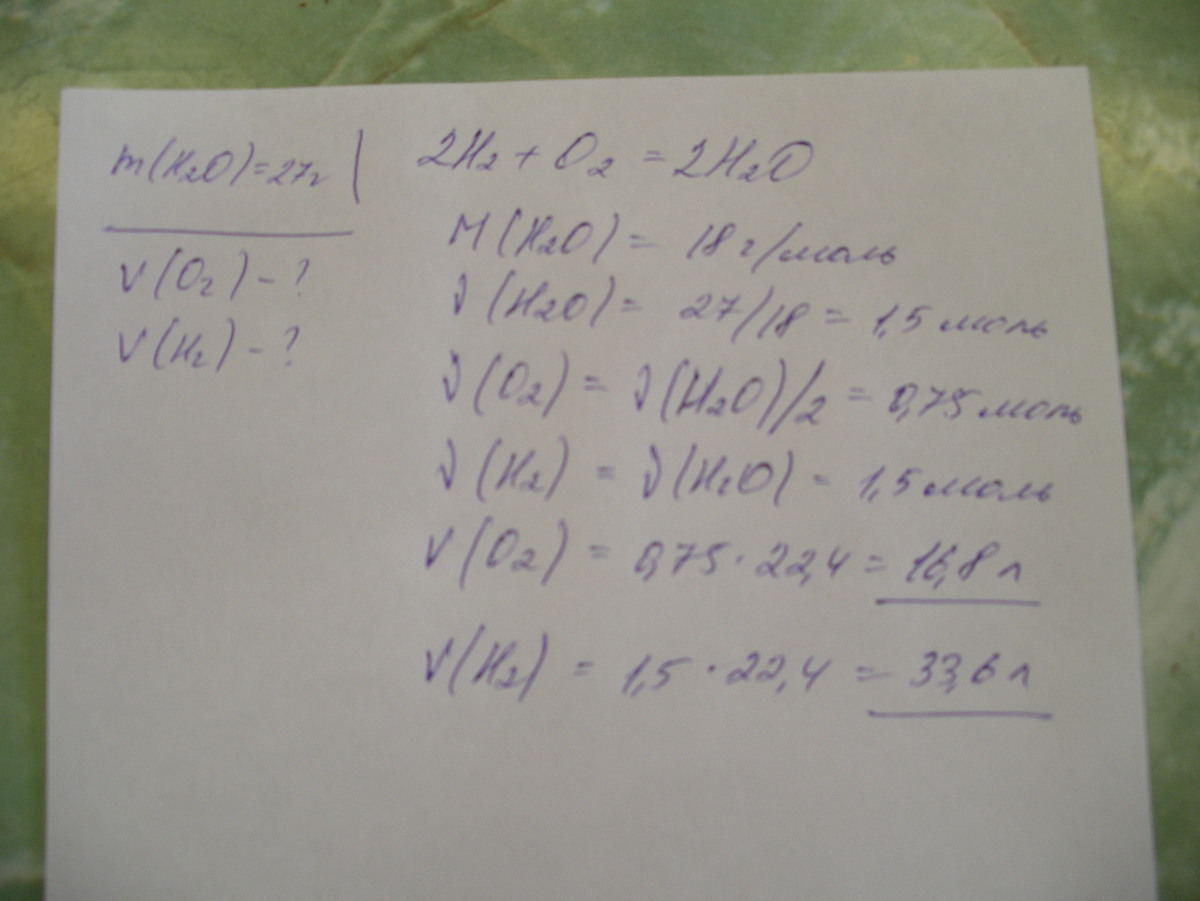 m(H₂O)=27г
V(O₂) - ?
V(H₂) - ?
2H₂ + O₂ = 2H₂O
M(H₂O) = 18 г/моль
ν(H₂O) = 27/18 = 1,5 моль
ν(O₂) = ν(H₂O)/2 = 0,75 моль
ν(H₂) = ν(H₂O) = 1,5 моль
V(O₂) = 0,75 · 22,4 = 16,8 л
V(H₂) = 1,5 · 22,4 = 33,6 л